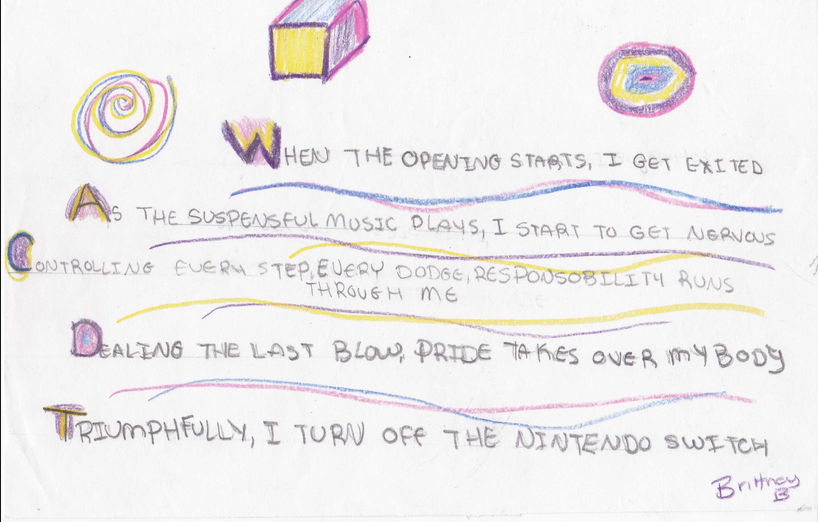 WHEN THE OPENING STARTS, I GET EXITED
AS THE SUSPENSFUL MUSIC PLAYS, I START TO GET NERVOUS
CONTROLLING EVERY STEP, EVERY DODGE, RESPONSOBILITY RUNS
THROUGH ME
DEALING THE LAST BLOW, PRIDE TAKES OVER MY BODY
TRIUMPHFULLY, I TURN OFF THE NINTENDO SWITCH
Brittney
B